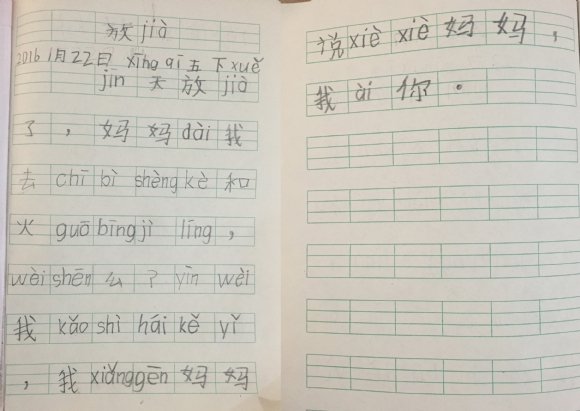 放 jià
2016 1月22日 xīng qī 五 下 xuě
jīn 天 放 jià
了，妈妈 dài 我
去 chī bì shèng kè 和
火 guō bīng jì líng，
wèi shén 么？yīn wèi
我 kǎo shì hái kě yǐ
，我 xiǎng gēn 妈妈
说 xiè xiè 妈妈，
我 ài 你。